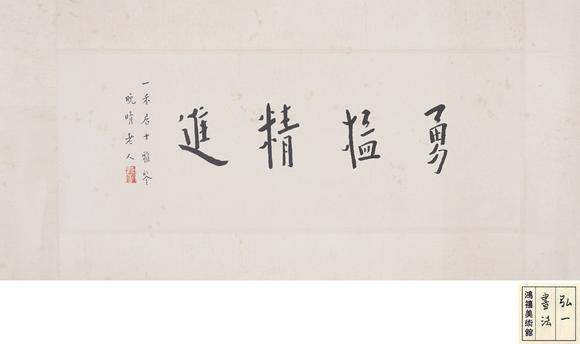 勇猛精進
一禾居士雅鉴
晚晴老人
弘一
書法
鴻禧美術館